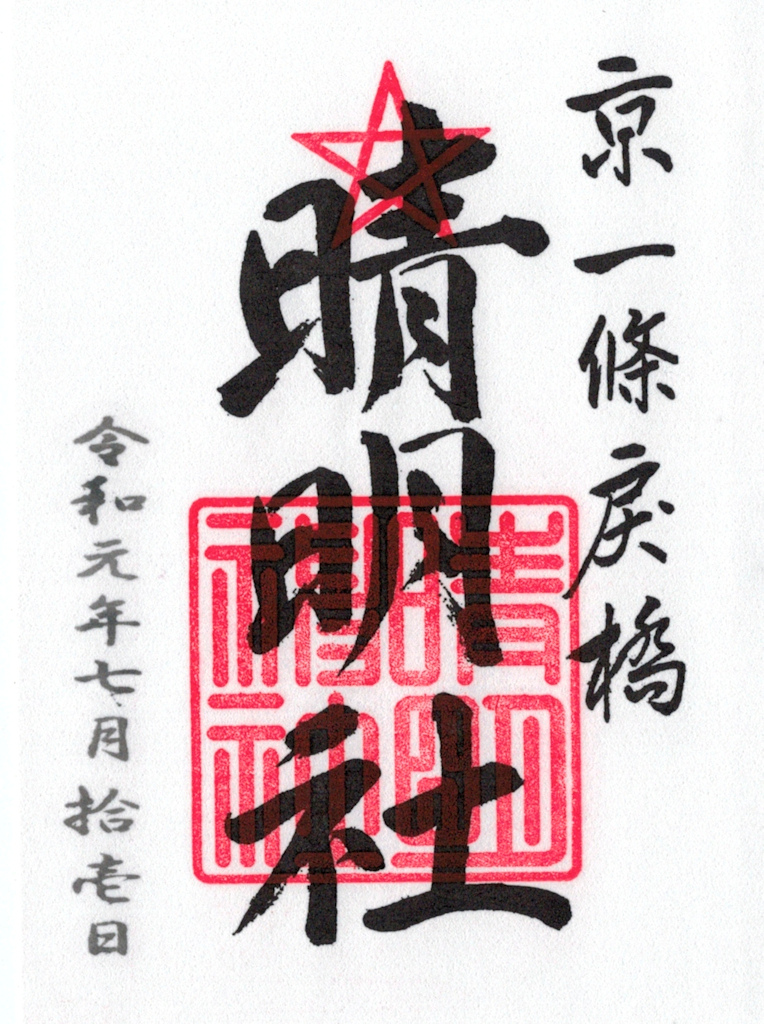 京一條戻橋
晴明社
晴明
令和元年七月拾壱日